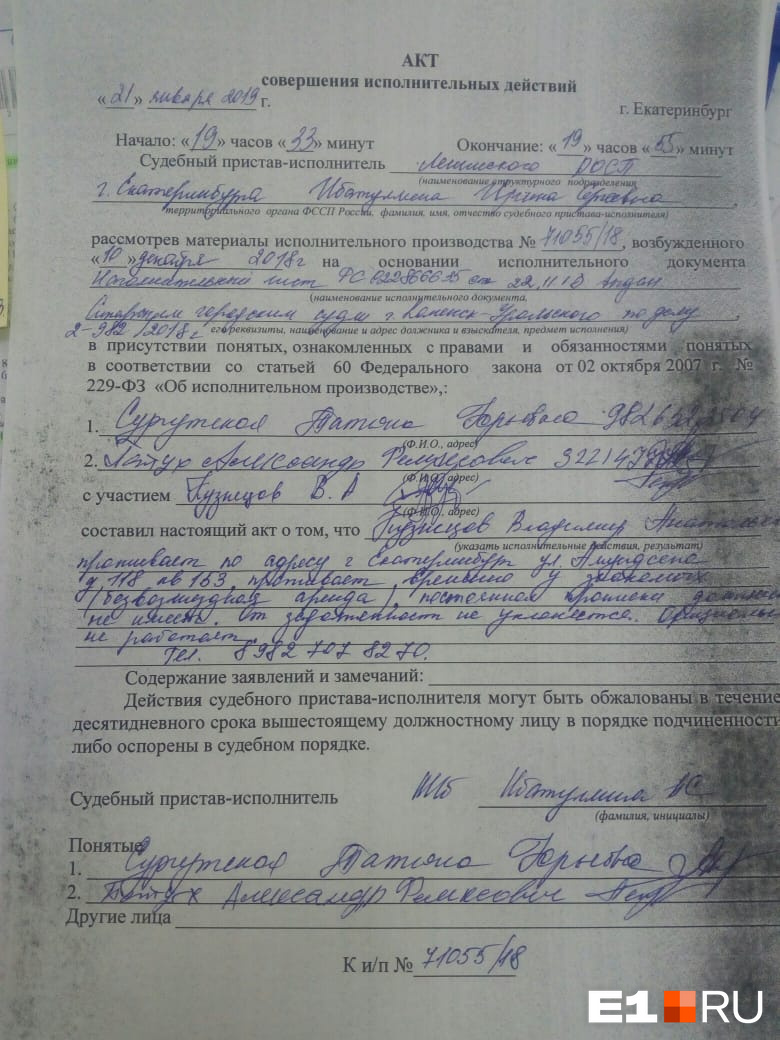 АКТ
совершения исполнительных действий
«21» января 2019 г.
г. Екатеринбург
Начало: «19» часов «33» минут Окончание: «19» часов «55» минут
Судебный пристав-исполнитель Ленинского РОСП
(наименование структурного подразделения
г. Екатеринбурга Ибатуллина Ирина Сергеевна,
территориального органа ФССП России, фамилия, имя, отчество судебного пристава-исполнителя)
рассмотрев материалы исполнительного производства № 71055/18, возбужденного
«10» декабря 2018 г на основании исполнительного документа
Исполнительный лист ФС 022866635 от 22.11.18
(наименование исполнительного документа,
городским судом г. Каменск-Уральского по делу,
2-982/2018 г его реквизиты, наименование и адрес должника и взыскателя, предмет исполнения)
в присутствии понятых, ознакомленных с правами и обязанностями понятых
в соответствии со статьей 60 Федерального закона от 02 октября 2007 г. №
229-ФЗ «Об исполнительном производстве»,:
1. Сургутская Татьяна Юрьевна
(Ф.И.О., адрес)
2. Александр
(Ф.И.О., адрес)
с участием Кузнецов В. А
(Ф.И.О., адрес)
составил настоящий акт о том, что Кузнецов Владимир
(указать исполнительные действия, результат)
проживает по адресу г Екатеринбург ул. Амундсена
д 118 кв 153 проживает временно у знакомых
(безвозмездная аренда), постоянной прописки должник
не имеет. От задолженности не уклоняется. Официально
не работает
Тел. 8 982 707 8270.
Содержание заявлений и замечаний:
Действия судебного пристава-исполнителя могут быть обжалованы в течение
десятидневного срока вышестоящему должностному лицу в порядке подчиненности
либо оспорены в судебном порядке.
Судебный пристав-исполнитель Ибатуллина ИС
(фамилия, инициалы)
Понятые
1. Сургутская Татьяна Юрьевна
2. Александр
Другие лица
К и/п № 71055/18
E1.RU